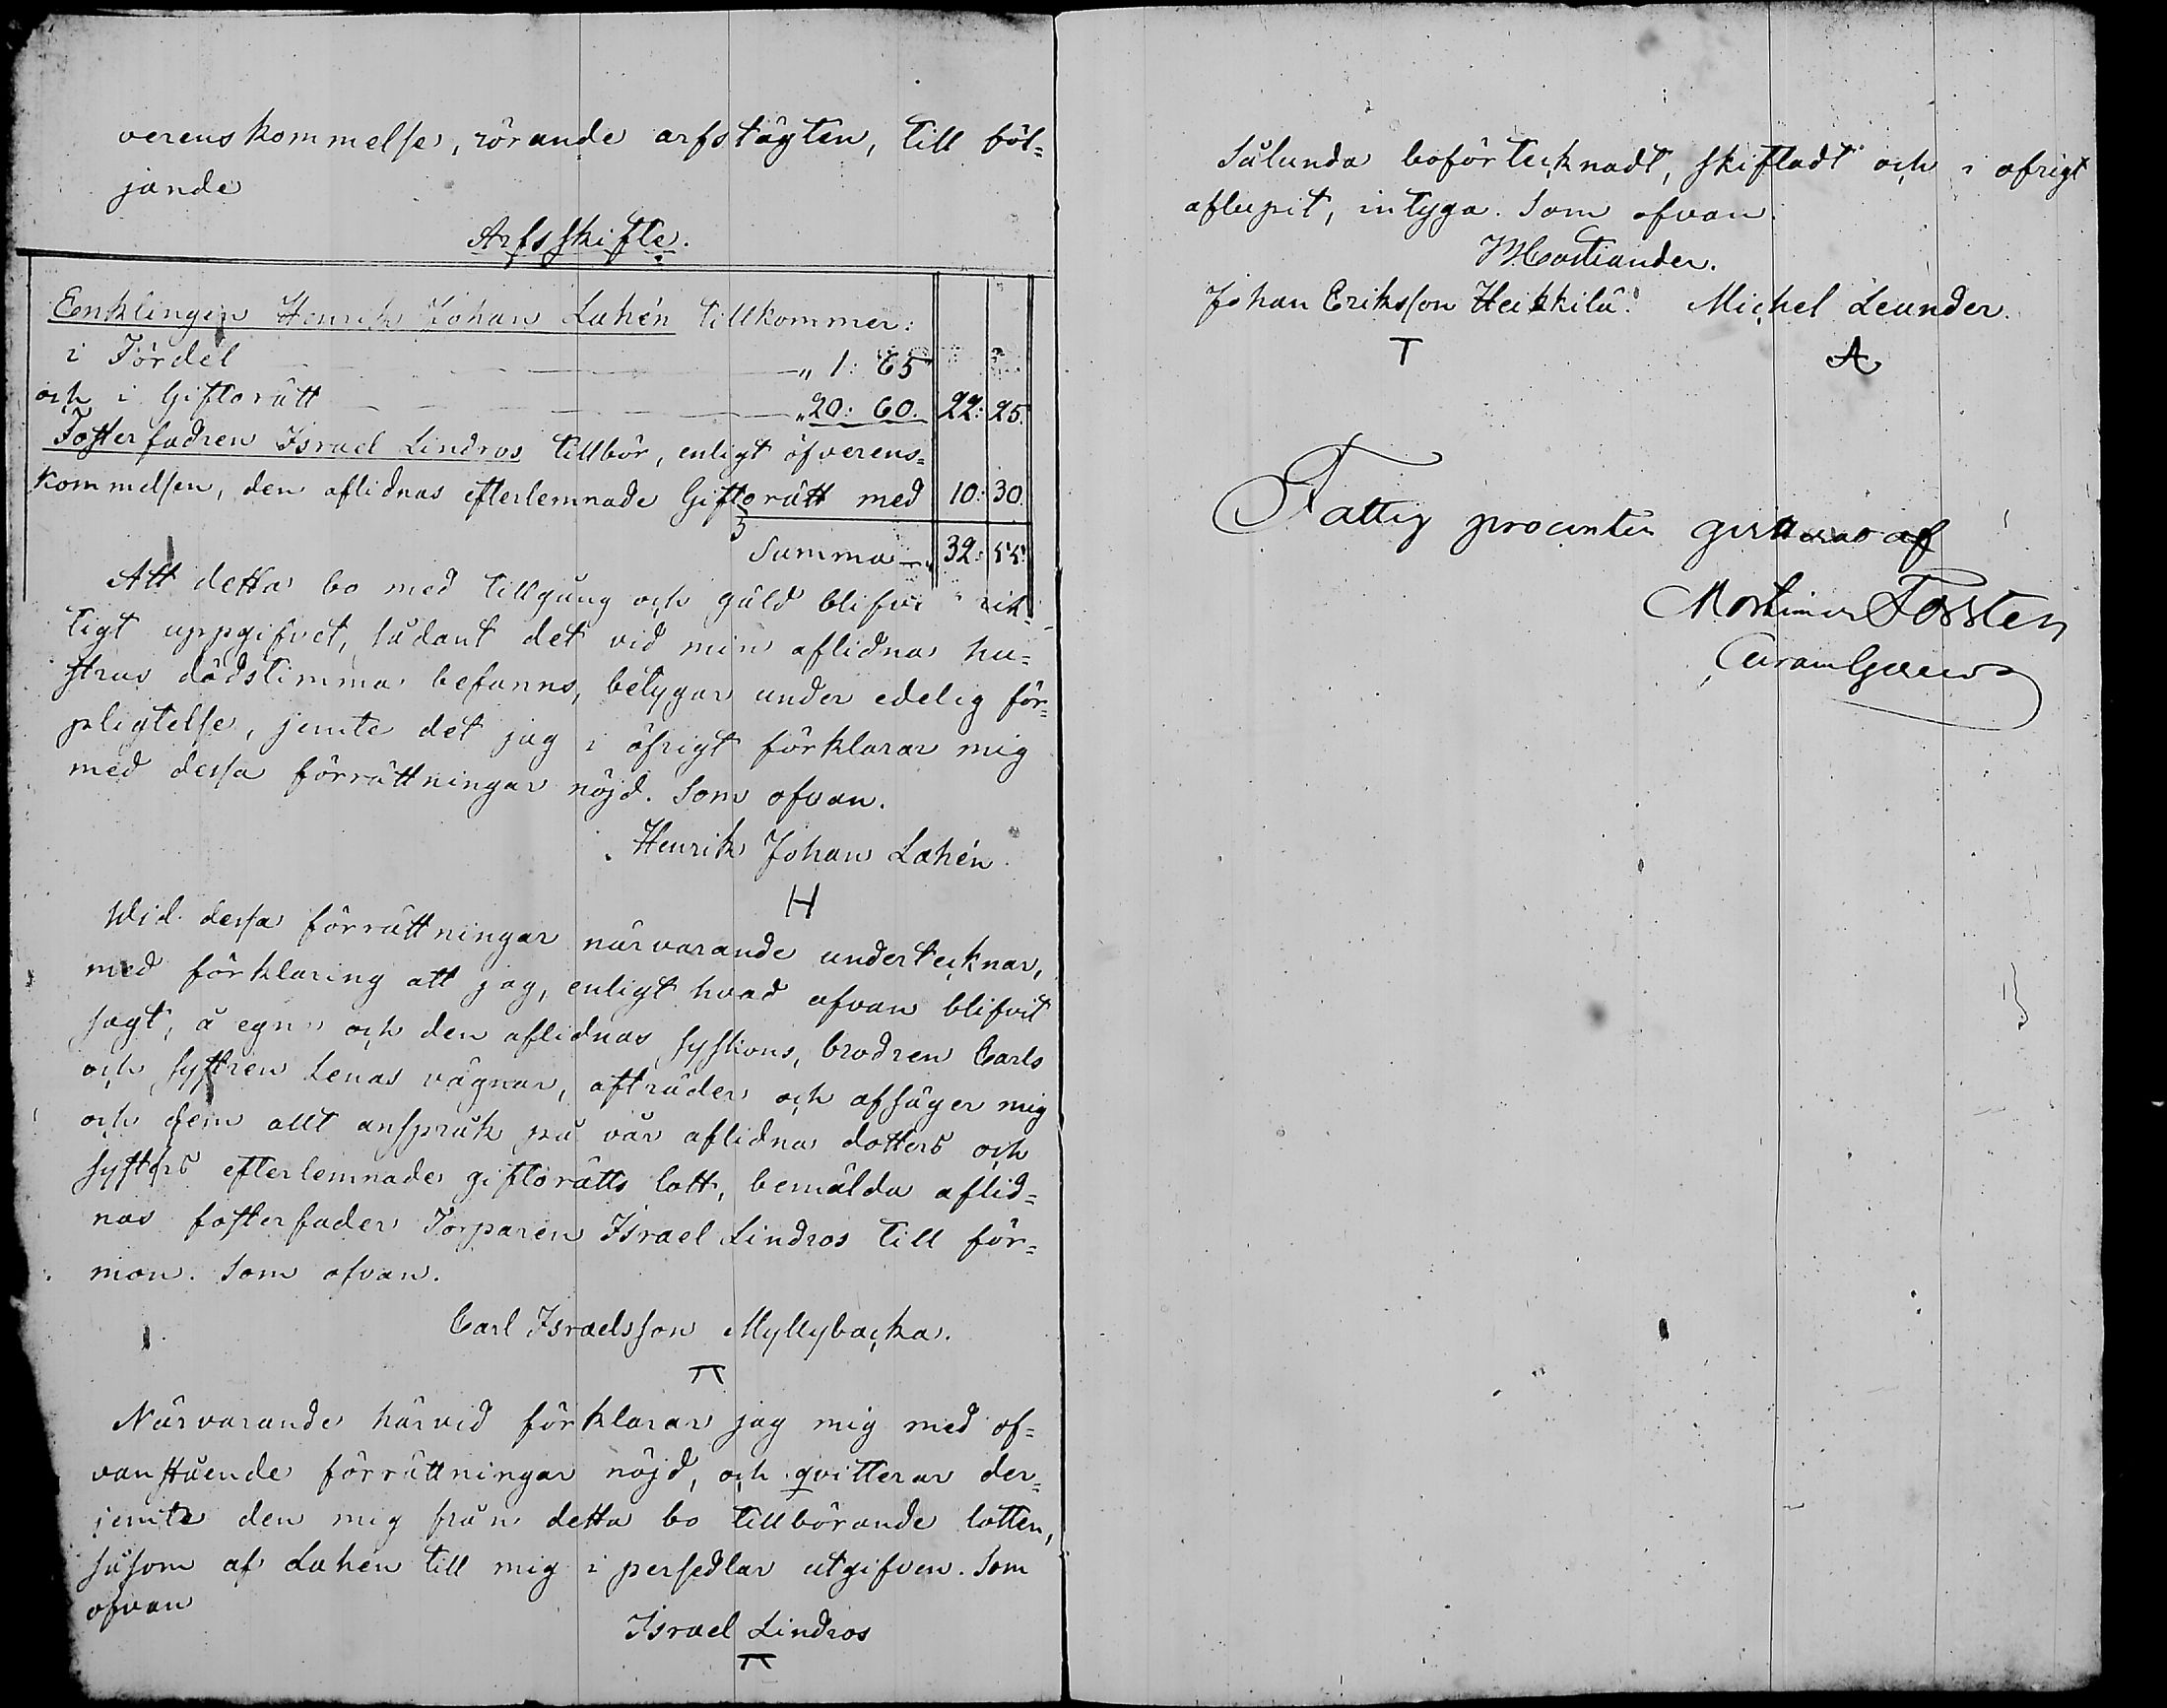 verenskommelse, rörande arfstägten, till föl=
jande
Arfsskifte.
Enklingen Henrik Johan Lahén tillkommer:
i Fördel — „ 1: 65
och i Giftorätt — „ 20: 60. 22: 25.
Fosterfadren Israel Lindros tillbör, enligt öfverens=
kommelsen, den aflidnas efterlemnade Giftorätt med 10: 30.
Summa — „ 32: 55.
Att detta bo med tillgång och gäld blifvi rik=
tigt uppgifvet, sådant det vid min aflidna hu=
strus dödstimma befanns, betygar under edelig för=
pligtelse, jemte det jag i öfrigt förklarar mig
med dessa förrättningar nöjd. Som ofvan.
Henrik Johan Lahén
H
Wid dessa förrättningar närvarande undertecknar,
med förklaring att jag, enligt hvad ofvan blifvit
sagt, å egna och den aflidnas syskons, brodren Carls
och systren Lenas vägnar, afträder och afsäger mig
och dem allt anspråk på vår aflidna dotters och
systers efterlemnade giftorätts lott, bemälda aflid=
nas fosterfader Torparen Israel Lindros till för=
mon. Som ofvan.
Carl Israelsson Myllybacka.
Närvarande härvid förklarar jag mig med of=
vanstående förrättningar nöjd, och qvitterar der=
jemte den mig från detta bo tillbörande lotten,
såsom af Lahén till mig i persedlar utgifven. Som
ofvan
Israel Lindros
Sålunda boförtecknadt, skiftadt och i öfrigt
aflupit, intyga. Som ofvan.
Johan Eriksson Heikkilä. Michel Leander.
T A
Fattig procenten af
Mortimer Forstén